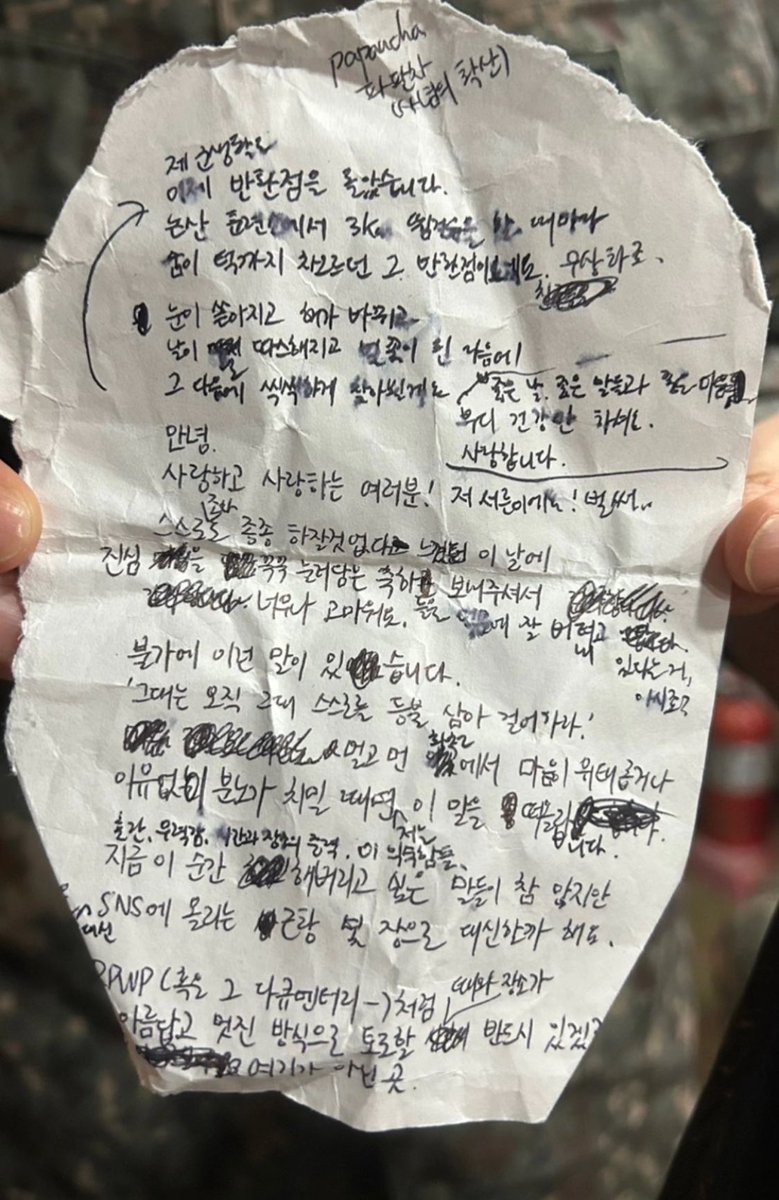 papancha
파판차
(사념의 확산)
제 군생활도
이제 반환점을 돌았습니다.
논산 훈련소에서 3km 뜀걸음을 할 때마다
숨이 턱까지 차오르던 그 반환점이로네요.
눈이 쏟아지고 해가 바뀌고
날이 따스해지고 벚꽃이 핀 다음에
그 다음에 씩씩하게 찾아뵐게요
좋은 날, 좋은 말들과 마음
부디 건강만 하세요.
사랑합니다.
안녕.
사랑하고 사랑하는 여러분! 저 서른이에요! 벌써..
스스로도 종종 하잘것없다 느꼈던 이 날에
진심을 꾹꾹 눌러담은 축하 보내주셔서
너무나 고마워요. 잘 버텨내고
있다는 거,
아시죠?
불가에 이런 말이 있습니다.
'그대는 오직 그대 스스로를 등불 삼아 걸어가라!'
멀고 먼 화촌에서 마음이 위태롭거나
이유없이 분노가 치밀 때면 저는 이 말을 떠올립니다.
혼란, 무력감, 시간과 장소의 중력. 이 의뭉함들.
지금 이 순간 해버리고 싶은 말들이 참 많지만
SNS에 올리는 근황 몇 장으로 대신할까 해요.
RPWP (혹은 그 다큐멘터리-)처럼
아름답고 멋진 방식으로 토로할 때와 장소가 반드시 있겠죠
여기가 아닌 곳.